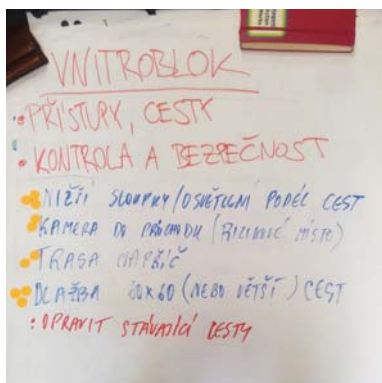 VNITROBLOK
• PŘÍSTUPY, CESTY
• KONTROLA A BEZPEČNOST
NIŽŠÍ SLOUPKY/OSVĚTLENÍ PODÉL CEST
KAMERA DO PRŮCHODU (RIZIKOVÉ MÍSTO)
TRASA NAPŘÍČ
DLAŽBA 60x60 (NEBO VĚTŠÍ) CEST
• OPRAVIT STÁVAJÍCÍ CESTY